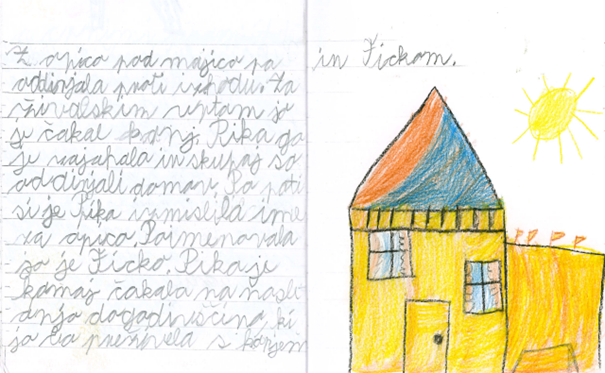 Z opico pod majico pa
oddirjala proti izhodu. Za
živalskim vrtom jo
je čakal konj. Pika ga
je zajahala in skupaj so
oddirjali domov. Po poti
si je Pika izmislila ime
za opico. Poimenovala
jo je Ficko. Pika je
komaj čakala na nasle
dnjo dogodivščino, ki
jo bo preživela s konjem
in Fickom.